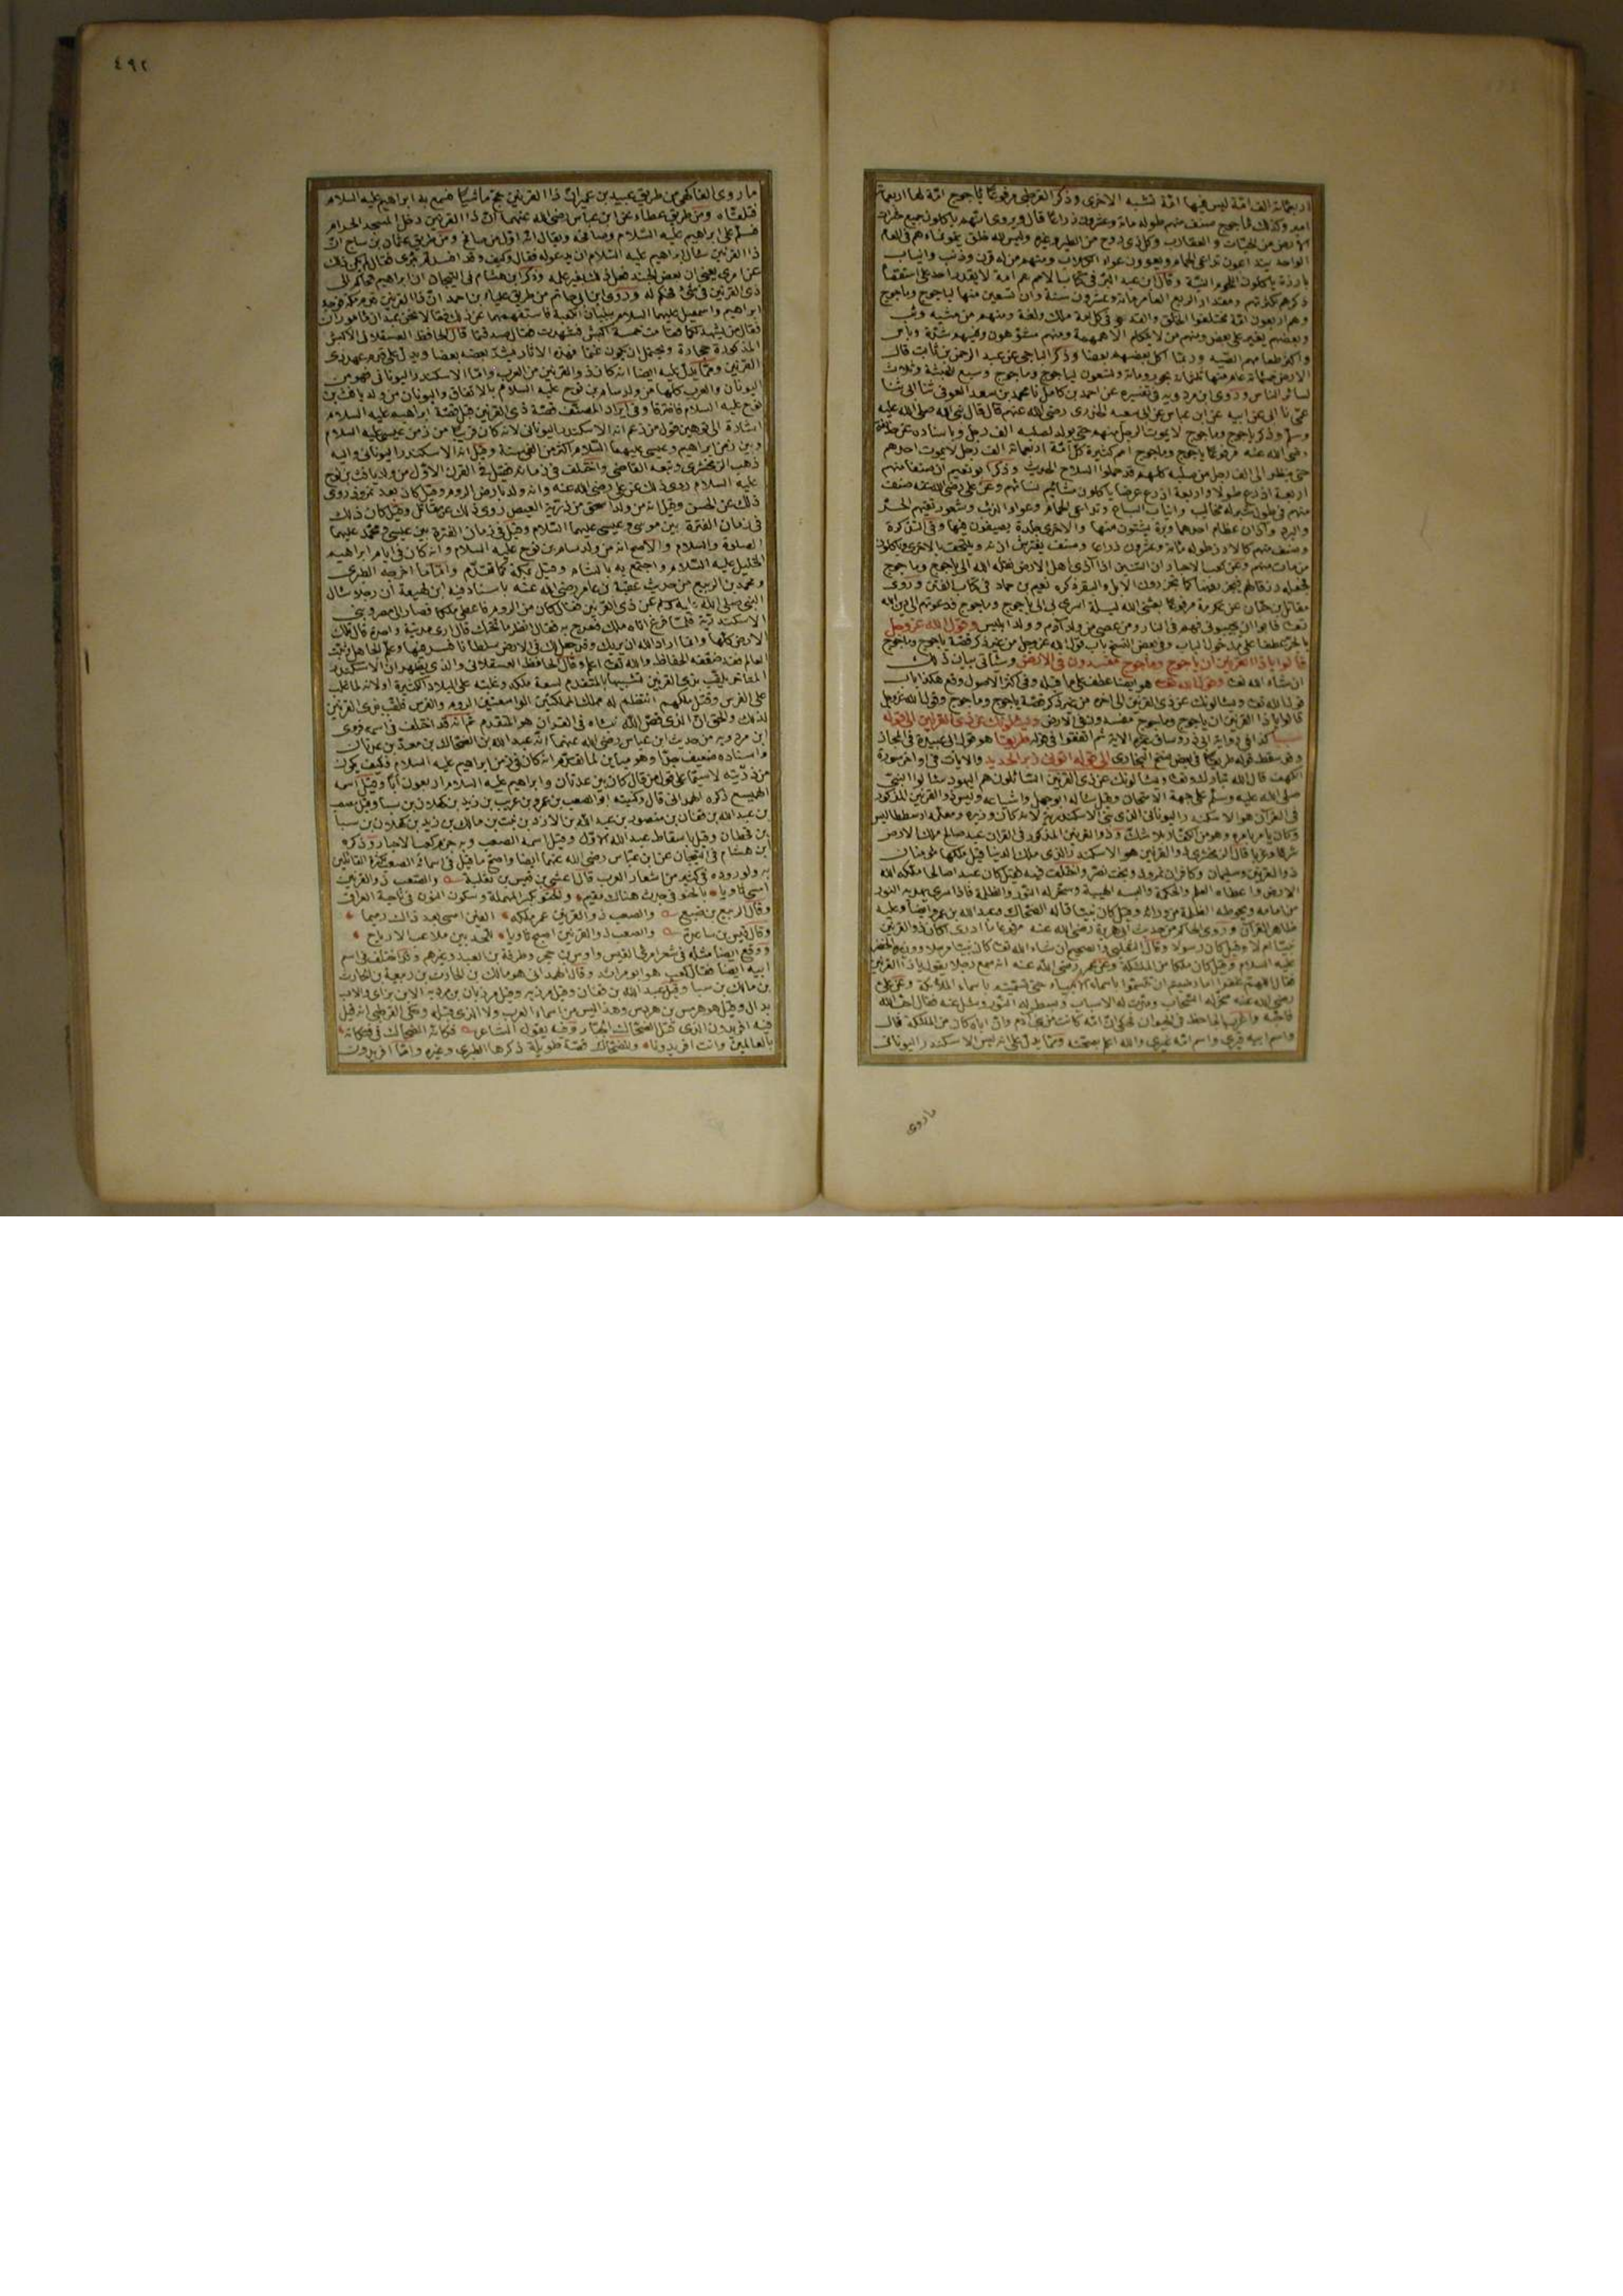 اربعمائة الف امة ليس فيها امة تشبه الاخرى وذكر القرطبي مرفوعا ياجوج امة لها اربعمائة
امير وكذلك ماجوج صنف منهم طوله مائة وعشرون ذراعا قال ويروى انهم ياكلون جميع حشرات
الارض من الحيات والعقارب وكل ذي روح من الطير وغيره وليس لله خلق ينمو نماءهم في العام
الواحد يتداعون تداعي الحمام ويعوون عواء الكلاب ومنهم من له قرن وذنب وانياب
بارزة ياكلون اللحوم النية وقال ابن عبد البر في كتاب الامم هم امة لا يقدر احد على استقصاء
ذكرهم لكثرتهم ومقدار الربع العامر مائة وعشرون سنة وان تسعين منها لياجوج وماجوج
وهم اربعون امة مختلفوا الخلق والقدود في كل امة ملك ولغة ومنهم من مشيه وثب
وبعضهم يغير على بعض ومنهم من لا يتكلم الا همهمة ومنهم مشوهون وفيهم شدة وباس
واكثر طعامهم الصيد وربما اكل بعضهم بعضا وذكر الباجي عن عبد الرحمن بن ثابت قال
الارض خمسمائة عام منها ثلثمائة بحور ومائة وتسعون لياجوج وماجوج وسبع للحبشة وثلاث
لسائر الناس وروى ابن مردويه في تفسيره عن احمد بن كامل نا محمد بن سعد العوفي ثنا ابي ثنا
عمي نا ابي عن ابيه عن ابن عباس عن ابي سعيد الخدري رضي الله عنهم قال قال نبي الله صلى الله عليه
وسلم وذكر ياجوج وماجوج لا يموت الرجل منهم حتى يولد لصلبه الف رجل وباسناده عن حذيفة
رضي الله عنه مرفوعا ياجوج وماجوج امم كثيرة كل امة اربعمائة الف رجل لا يموت احدهم
حتى ينظر الى الف رجل من صلبه كلهم قد حملوا السلاح الحديث وذكر ابو نعيم ان صنفا منهم
اربعة اذرع طولا واربعة اذرع عرضا ياكلون مشائم نسائهم وعن علي رضي الله عنه صنف
منهم في طول شبر له مخالب وانياب السباع وتداعي الحمام وعواء الذئب وشعور تقيهم الحر
والبرد واذان عظام احدها وبرة يشتون فيها والاخرى جلدة يصيفون فيها وفي التذكرة
وصنف منهم كالارز طوله مائة وعشرون ذراعا وصنف يفترش اذنه ويلتحف بالاخرى وياكلون
من مات منهم وعن كعب الاحبار ان التنين اذا آذى اهل الارض نقله الله الى ياجوج وماجوج
فجعله رزقا لهم فيجزرونها كما يجزرون الابل والبقر ذكره نعيم بن حماد في كتاب الفتن وروى
مقاتل بن حيان عن عكرمة مرفوعا بعثني الله ليلة اسري بي الى ياجوج وماجوج فدعوتهم الى دين الله
تعالى فابوا ان يجيبوني فهم في النار ومن عصى من ولد آدم وولد ابليس وقول الله عز وجل
بالجر عطفا على مدخول الباب وفي بعض النسخ باب قول الله عز وجل من غير ذكر قصة ياجوج وماجوج
قالوا يا ذا القرنين ان ياجوج وماجوج مفسدون في الارض وسياتي بيان ذلك
ان شاء الله تعالى وقول الله تعالى هو ايضا عطف على ما قبله وفي اكثر الاصول وقع هكذا باب
قول الله تعالى ويسالونك عن ذي القرنين الى اخره من غير ذكر قصة ياجوج وماجوج وقول الله عز وجل
قالوا يا ذا القرنين ان ياجوج وماجوج مفسدون في الارض ويسئلونك عن ذي القرنين الى قوله
سببا كذا في رواية ابي ذر وساق غيره الاية ثم اتفقوا في قوله طريقا هو قول ابي عبيدة في المجاز
وقد سقط قوله طريقا في بعض نسخ البخاري الى قوله اتوني زبر الحديد والايات في اواخر سورة
الكهف قال الله تبارك وتعالى ويسالونك عن ذي القرنين السائلون هم اليهود سالوا النبي
صلى الله عليه وسلم على جهة الامتحان وقيل ساله ابو جهل واشياعه وليس ذو القرنين المذكور
في القرآن هو الاسكندر اليوناني الذي بنى الاسكندرية لانه كان وزيره ومعلمه ارسطاطاليس
وكان يامر بامره وهو من الكفار بلا شك وذو القرنين المذكور في القران عبد صالح ملك الارض
شرقا وغربا قال الزمخشري ذو القرنين هو الاسكندر الذي ملك الدنيا قيل ملكها مؤمنان
ذو القرنين وسليمان وكافران نمرود وبخت نصر واختلف فيه فقيل كان عبدا صالحا ملكه الله
الارض واعطاه العلم والحكمة والبسه الهيبة وسخر له النور والظلمة فاذا سرى يهديه النور
من امامه ويحوطه الظلمة من ورائه وقيل كان نبيا قاله الضحاك وعبد الله بن عمرو ايضا وعليه
ظاهر القرآن وروى الحاكم من حديث ابي هريرة رضي الله عنه مرفوعا ما ادري اكان ذو القرنين
نبيا ام لا وقيل كان رسولا وقال الثعلبي والصحيح ان شاء الله تعالى كان نبيا مرسلا ووزيره الخضر
عليه السلام وقيل كان ملكا من الملائكة وعن عمر رضي الله عنه انه سمع رجلا يقول يا ذا القرنين
فقال اللهم غفرا اما رضيتم ان تسموا باسماء الانبياء حتى تسميتم باسماء الملائكة وعن علي
رضي الله عنه سخر له السحاب ومدت له الاسباب وبسط له النور وسئل عنه فقال احب الله
فاحبه واغرب الجاحظ في الحيوان فحكى ان امه كانت من بني آدم وان اباه كان من الملائكة قال
واسم ابيه فيرى واسم امه غيرى والله اعلم بصحته ومما يدل على انه ليس الاسكندر اليوناني
ما روى
٤٩٢
ما روى الفاكهي من طريق عبيد بن عمير ان ذا القرنين حج ماشيا فسمع به ابراهيم عليه السلام
فتلقاه ومن طريق عطاء عن ابن عباس رضي الله عنهما ان ذا القرنين دخل المسجد الحرام
فسلم على ابراهيم عليه السلام وصافحه ويقال انه اول من صافح ومن طريق عثمان بن ساج ان
ذا القرنين سال ابراهيم عليه السلام ان يدعو له فقال وكيف وقد افسدتم بئري فقال لم يكن ذلك
عن امري يعني ان بعض الجند فعل ذلك بغير علمه وذكر ابن هشام في التيجان ان ابراهيم تحاكم الى
ذي القرنين في شيء فحكم له وروى ابن ابي حاتم من طريق علباء بن احمد ان ذا القرنين قدم مكة فوجد
ابراهيم واسمعيل عليهما السلام يبنيان الكعبة فاستفهمهما عن ذلك فقالا نحن عبدان مأموران
فقال من يشهد لكما فقامت خمسة اكبش فشهدت فقال صدقتما قال الحافظ العسقلاني الاكبش
المذكورة حجارة ويحتمل ان يكون غنما فهذه الاثار يشد بعضه بعضا ويدل على قدم عهد ذي
القرنين ومما يدل عليه ايضا انه كان ذو القرنين من العرب واما الاسكندر اليوناني فهو من
اليونان والعرب كلها من ولد سام بن نوح عليه السلام بالاتفاق واليونان من ولد يافث بن
نوح عليه السلام فافترقا وفي ايراد المصنف قصة ذي القرنين قبل قصة ابراهيم عليه السلام
اشارة الى توهين قول من زعم انه الاسكندر اليوناني لانه كان قريبا من زمن عيسى عليه السلام
وبين زمن ابراهيم وعيسى عليهما السلام اكثر من الفي سنة وقيل انه الاسكندر اليوناني واليه
ذهب الزمخشري وتبعه القاضي واختلف في زمانه فقيل في القرن الاول من ولد يافث بن نوح
عليه السلام روي ذلك عن علي رضي الله عنه وانه ولد بارض الروم وقيل كان بعد نمرود روي
ذلك عن الحسن وقيل انه من ولد اسحق من ذرية العيص روي ذلك عن مقاتل وقيل كان ذلك
في زمان الفترة بين موسى وعيسى عليهما السلام وقيل في زمان الفترة بين عيسى ومحمد عليهما
الصلوة والسلام والاصح انه من ولد سام بن نوح عليه السلام وانه كان في ايام ابراهيم
الخليل عليه السلام واجتمع به بالشام وقيل بمكة كما تقدم واما ما اخرجه الطبري
ومحمد بن الربيع من حديث عقبة بن عامر رضي الله عنه باسناد فيه ابن لهيعة ان رجلا سال
النبي صلى الله عليه وسلم عن ذي القرنين فقال كان من الروم فاعطي ملكا فصار الى مصر وبنى
الاسكندرية فلما فرغ اتاه ملك فعرج به فقال انظر ما تحتك قال ارى مدينة واحدة قال تلك
الارض كلها وانما اراد الله ان يريك وقد جعل لك في الارض سلطانا فسر فيها وعلم الجاهل وثبت
العالم فقد ضعفه الحفاظ والله تعالى اعلم وقال الحافظ العسقلاني والذي يظهر ان الاسكندر
المتاخر يلقب بذي القرنين تشبيها بالمتقدم لسعة ملكه وغلبته على البلاد الكثيرة او لانه لما غلب
على الفرس وقتل ملكهم انتظم له ملك المملكتين الواسعتين الروم والفرس فلقب بذي القرنين
لذلك والحق ان الذي قص الله نباه في القران هو المتقدم ثم انه قد اختلف في اسمه فروى
ابن مردويه من حديث ابن عباس رضي الله عنهما انه عبد الله بن الضحاك بن معد بن عدنان
واسناده ضعيف جدا وهو مباين لما تقدم انه كان في زمن ابراهيم عليه السلام فكيف يكون
من ذريته لا سيما على قول من قال كان بين عدنان وابراهيم عليه السلام اربعون ابا وقيل اسمه
الهميسع ذكره الهمداني قال وكنيته ابو الصعب بن عمرو بن عريب بن زيد بن كهلان بن سبا وقيل صعب
بن عبد الله بن قنان بن منصور بن عبد الله بن الازد بن نبت بن مالك بن زيد بن كهلان بن سبا
بن قحطان وقيل باسقاط عبد الله الاول وقيل اسمه الصعب وبه جزم كعب الاحبار وذكره
ابن هشام في التيجان عن ابن عباس رضي الله عنهما ايضا واصح ما قيل في اسمائه الصعب لكثرة القائلين
به ولوروده في كثير من اشعار العرب قال اعشى بن قيس بن ثعلبة والصعب ذو القرنين
امسى ثاويا بالحنو في جدث هناك مقيم والحنو بكسر المهملة وسكون النون في ناحية العراق
وقال الربيع بن ضبيع والصعب ذو القرنين عمر ملكه الفين امسى بعد ذاك رميما
وقال قيس بن ساعدة والصعب ذو القرنين اصبح ثاويا باللحد بين ملاعب الارياح
ووقع ايضا مثله في شعر امرئ القيس واوس بن حجر وطرفة بن العبد وغيرهم وقد اختلف في اسم
ابيه ايضا فقال كعب هو ابو مراثد وقال الهمداني هو مالك بن الحارث بن ربيعة بن الحارث
بن مالك بن سبا وقيل عبد الله بن قنان وقيل مرزبه وقيل مرزبان بن مردبه الاب بزاي والاب
بدال وقيل هو هرمس بن هرديس وهذا ليس من اسماء العرب ولا الذي قبله وحكى القرطبي انه قيل
فيه افريدون الذي قتل الضحاك الجبار وفيه يقول الشاعر فكانه الضحاك في فتكاته
بالعالمين وانت افريدونا وللضحاك قصة طويلة ذكرها الطبري وغيره واما افريدون